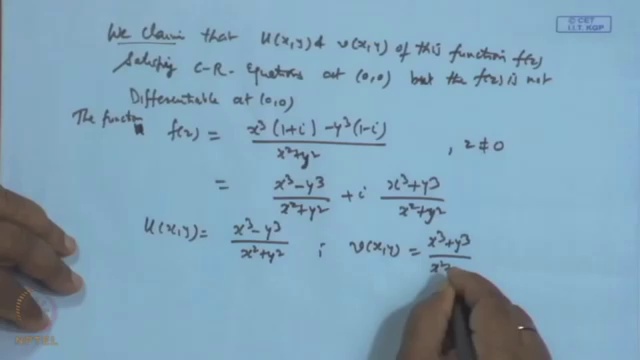 © CET
I.I.T. KGP
We claim that u(x,y) & v(x,y) of this function f(z)
Satisfing C-R- Equations at (0,0) but the f(z) is not
Differentiable at (0,0)
The function f(z) = x³(1+i) - y³(1-i) / x²+y² , z ≠ 0
= x³-y³ / x²+y² + i x³+y³ / x²+y²
u(x,y) = x³-y³ / x²+y² ; v(x,y) = x³+y³ / x²
NPTEL